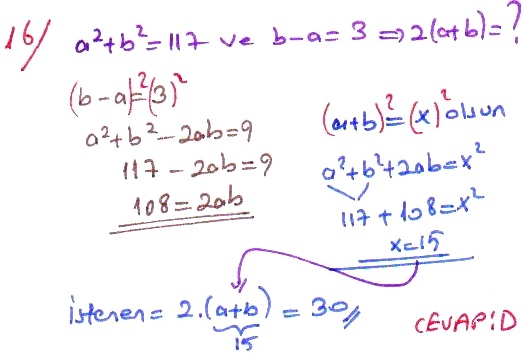 16/ a²+b²=117 ve b-a=3 ⇒ 2(a+b)=?
(b-a)²=(3)²
a²+b²-2ab=9
117-2ab=9
108=2ab
(a+b)²=(x)² olsun
a²+b²+2ab=x²
117+108=x²
x=15
istenen=2.(a+b)=30
15
CEVAP:D